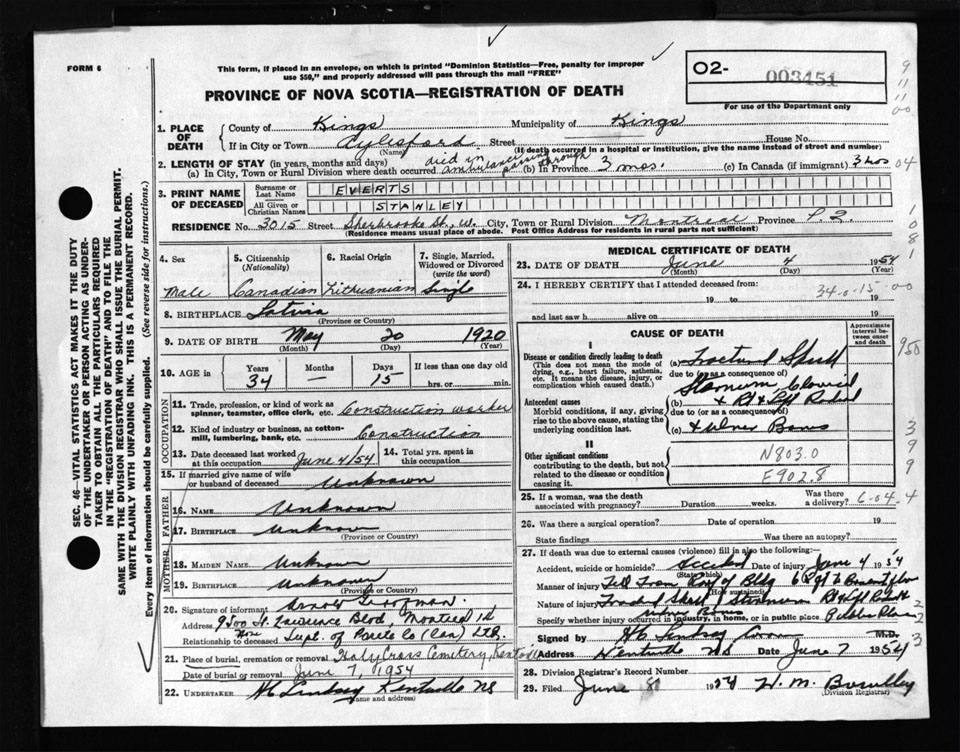 FORM 6
This form, if placed in an envelope, on which is printed "Dominion Statistics—Free, penalty for improper
use $50," and properly addressed will pass through the mail "FREE"
PROVINCE OF NOVA SCOTIA—REGISTRATION OF DEATH
02- 003451
For use of the Department only
1. PLACE OF DEATH
County of Kings Municipality of Kings
If in City or Town Aylesford Street House No.
(Name) (If death occurred in a hospital or institution, give the name instead of street and number)
2. LENGTH OF STAY (in years, months and days)
(a) In City, Town or Rural Division where death occurred died in ambulance passing through (b) In Province 3 mos. (c) In Canada (if immigrant) 3 mos
3. PRINT NAME OF DECEASED
Surname or Last Name EVERTS
All Given or Christian Names STANLEY
RESIDENCE No. 3015 Street Sherbrooke St. W. City, Town or Rural Division Montreal Province P.Q.
(Residence means usual place of abode. Post Office Address for residents in rural parts not sufficient)
4. Sex Male
5. Citizenship (Nationality) Canadian
6. Racial Origin Lithuanian
7. Single, Married, Widowed or Divorced (write the word) Single
8. BIRTHPLACE Latvia
(Province or Country)
9. DATE OF BIRTH May 20 1920
(Month) (Day) (Year)
10. AGE in Years 34 Months — Days 15 If less than one day old
hrs. or min.
OCCUPATION
11. Trade, profession, or kind of work as spinner, teamster, office clerk, etc. Construction worker
12. Kind of industry or business, as cotton-mill, lumbering, bank, etc. Construction
13. Date deceased last worked at this occupation June 4/54
14. Total yrs. spent in this occupation
15. If married give name of wife or husband of deceased Unknown
FATHER
16. Name Unknown
17. Birthplace Unknown
(Province or Country)
MOTHER
18. Maiden Name Unknown
19. Birthplace Unknown
(Province or Country)
20. Signature of informant Arnold
Address 9500 St. Lawrence Blvd, Montreal
Relationship to deceased None Supt. of Co (Can) Ltd.
21. Place of burial, cremation or removal Holy Cross Cemetery, Kentville
Date of burial or removal June 7, 1954
22. UNDERTAKER H C Lindsay Kentville NS
(Name and address)
MEDICAL CERTIFICATE OF DEATH
23. DATE OF DEATH June 4 1954
(Month) (Day) (Year)
24. I HEREBY CERTIFY that I attended deceased from:
19 to 19
and last saw h alive on 19
34-0-15-00
CAUSE OF DEATH
Approximate interval between onset and death
I
Disease or condition directly leading to death
(This does not mean the mode of dying, e.g., heart failure, asthenia, etc. It means the disease, injury, or complication which caused death.)
(a) Fractured Skull
due to (or as a consequence of)
Antecedent causes
Morbid conditions, if any, giving rise to the above cause, stating the underlying condition last.
(b) & Rt & Left
due to (or as a consequence of)
(c) & Ulner Bones
II
Other significant conditions
contributing to the death, but not related to the disease or condition causing it
N803.0
E902.8
25. If a woman, was the death associated with pregnancy? Duration weeks. Was there a delivery?
6-04-4
26. Was there a surgical operation? Date of operation 19
State findings Was there an autopsy?
27. If death was due to external causes (violence) fill in also the following:
Accident, suicide or homicide? Accident Date of injury June 4 1954
(State which)
Manner of injury Fell From Roof of Bldg
(How sustained)
Nature of injury
Specify whether injury occurred in industry, in home, or in public place Public Place
Signed by M.D.
Address Kentville NS Date June 7 1954
28. Division Registrar's Record Number
29. Filed June 8 1954 H. M.
(Division Registrar)
SEC. 46—VITAL STATISTICS ACT MAKES IT THE DUTY
OF THE UNDERTAKER OR PERSON ACTING AS UNDER-
TAKER TO OBTAIN ALL THE PARTICULARS REQUIRED
IN THE "REGISTRATION OF DEATH" AND TO FILE THE
SAME WITH THE DIVISION REGISTRAR WHO SHALL ISSUE THE BURIAL PERMIT.
WRITE PLAINLY WITH UNFADING INK. THIS IS A PERMANENT RECORD.
Every item of information should be carefully supplied. (See reverse side for instructions.)